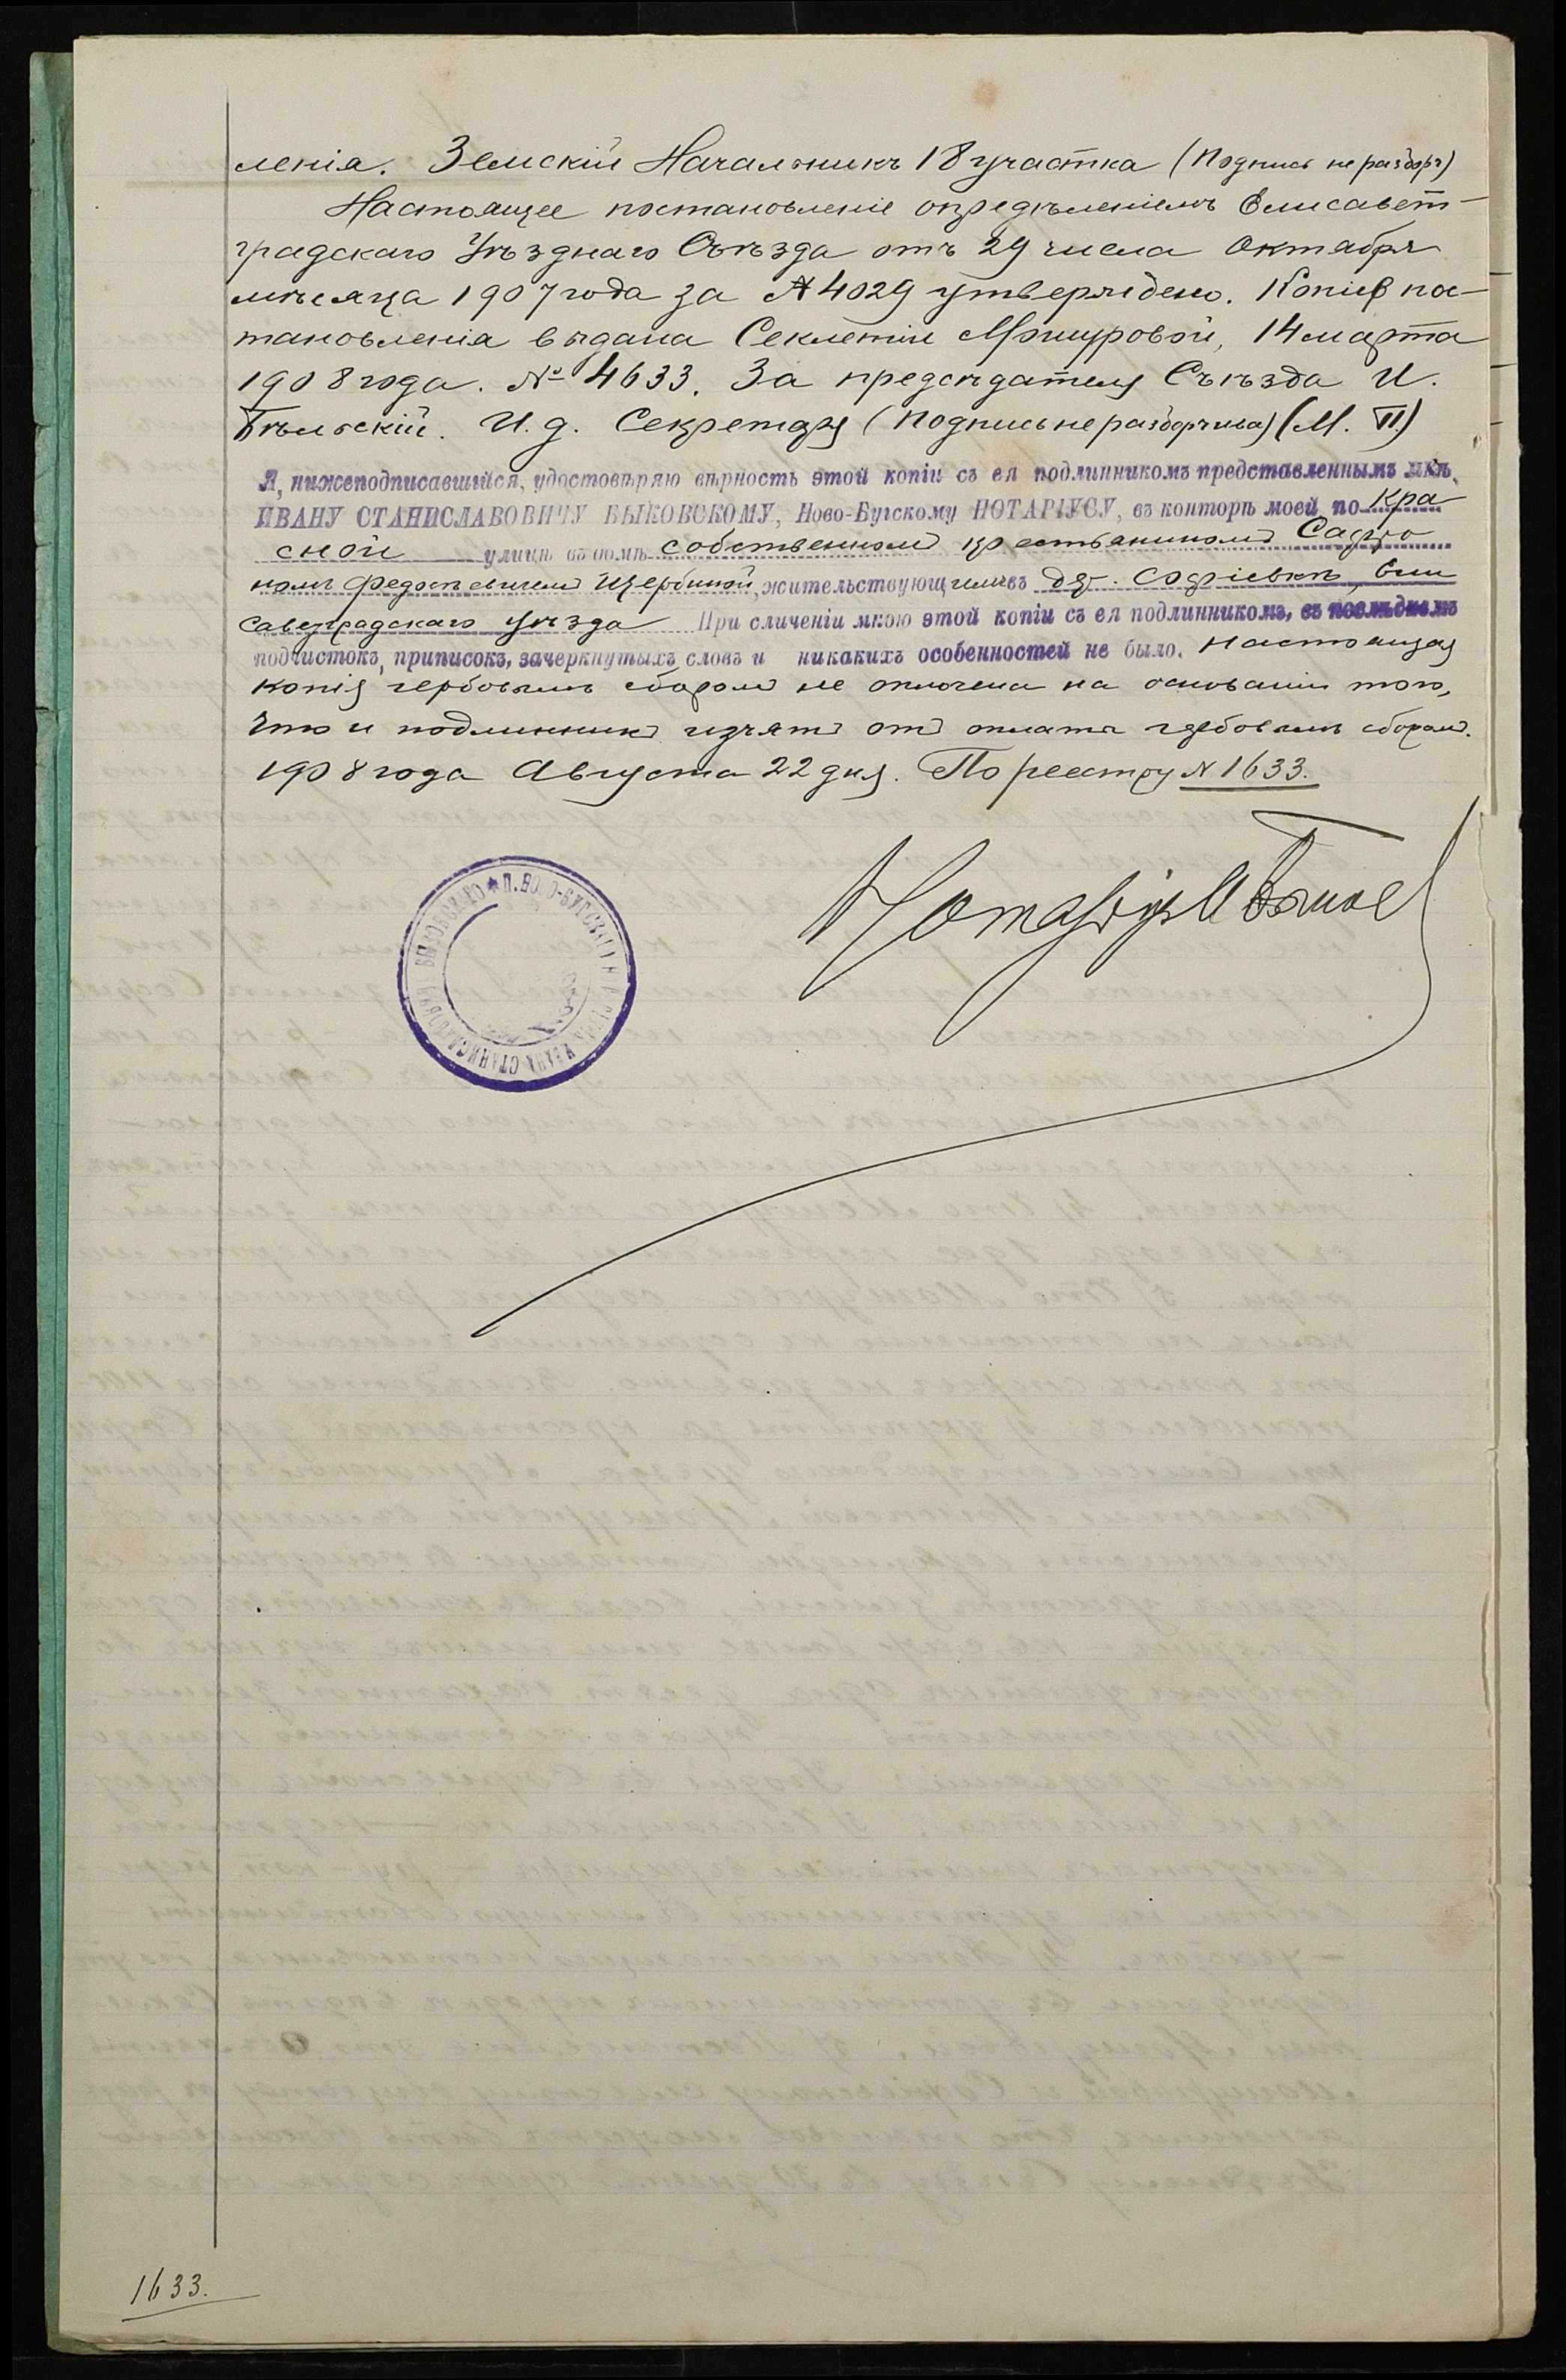 ленія. Земскій Начальникъ 18 участка (Подпись не разборч)
Настоящее постановленіе опредѣленіемъ Елисавет-
градскаго Уѣзднаго Съѣзда отъ 29 числа Октября
мѣсяца 1907 года за № 4029 утверждено. Копія пос-
тановленія выдана Секлетіи Мошуровой, 14 марта
1908 года. № 4633. За предсѣдателя Съѣзда И.
Бѣльскій. И. д. Секретаря (Подпись не разборчива) (М. П.)
Я, нижеподписавшійся, удостовѣряю вѣрность этой копіи съ ея подлинникомъ представленнымъ мнѣ,
ИВАНУ СТАНИСЛАВОВИЧУ БЫКОВСКОМУ, Ново-Бугскому НОТАРІУСУ, въ конторѣ моей по Кра
сной улицѣ въ домѣ собственномъ крестьяниномъ Сафро
номъ Федосѣевичемъ Щербиной, жительствующимъ въ дер. Софіевкѣ, Ели
саветградскаго уѣзда При сличеніи мною этой копіи съ ея подлинникомъ, въ послѣднемъ
подчистокъ, приписокъ, зачеркнутыхъ словъ и никакихъ особенностей не было. Настоящая
копія гербовымъ сборомъ не оплочена на основаніи того,
что и подлинникъ изъятъ отъ оплаты гербовымъ сборомъ.
1908 года Августа 22 дня. По реестру № 1633.
Нотаріусъ И Быков
* П. НОВО-БУГСКАГО НОТАРІУСА ИВАНА СТАНИСЛАВОВИЧА БЫКОВСКАГО
1633.